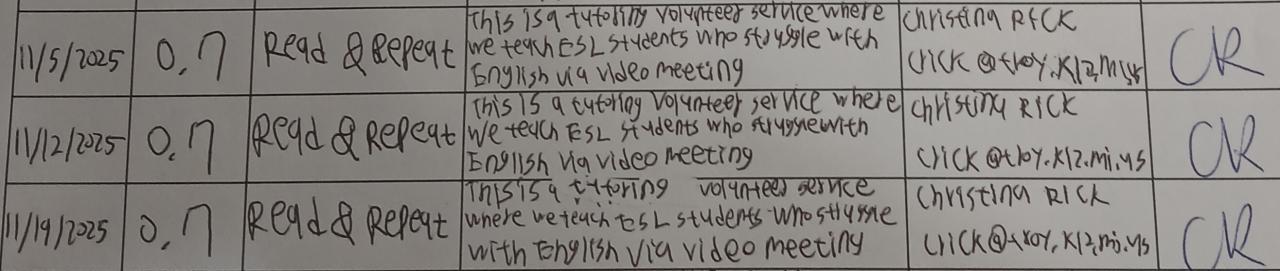 11/5/2025 0.7 Read & Repeat This is a tutoring volunteer service where
we teach ESL students who struggle with
English via video meeting
Christina Rick
crick@troy.k12.mi.us
CR
11/12/2025 0.7 Read & Repeat This is a tutoring volunteer service where
we teach ESL students who struggle with
English via video meeting
Christina Rick
crick@troy.k12.mi.us
CR
11/19/2025 0.7 Read & Repeat This is a tutoring volunteer service
where we teach ESL students who struggle
with English via video meeting
Christina Rick
crick@troy.k12.mi.us
CR